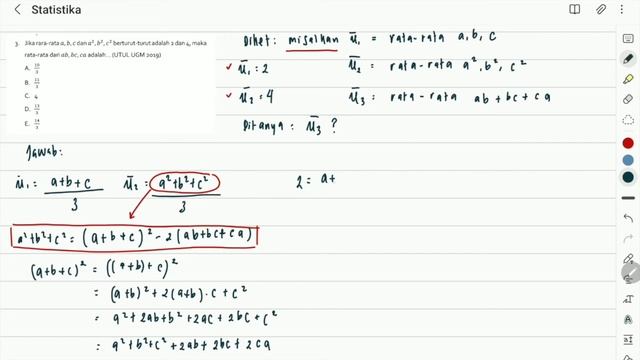 Statistika
3. Jika rara-rata a, b, c dan a², b², c² berturut-turut adalah 2 dan 4, maka
rata-rata dari ab, bc, ca adalah... (UTUL UGM 2019)
A. 10/3
B. 11/3
C. 4
D. 13/3
E. 14/3
Diket: misalkan ū₁ = rata-rata a, b, c
✓ ū₁ = 2 ū₂ = rata-rata a², b², c²
✓ ū₂ = 4 ū₃ = rata-rata ab + bc + ca
Ditanya: ū₃ ?
Jawab:
ū₁ = (a+b+c)/3 ū₂ = (a²+b²+c²)/3 2 = a+
a²+b²+c² = (a+b+c)² - 2(ab+bc+ca)
(a+b+c)² = ((a+b)+c)²
= (a+b)² + 2(a+b)·c + c²
= a² + 2ab + b² + 2ac + 2bc + c²
= a²+b²+c² + 2ab + 2bc + 2ca